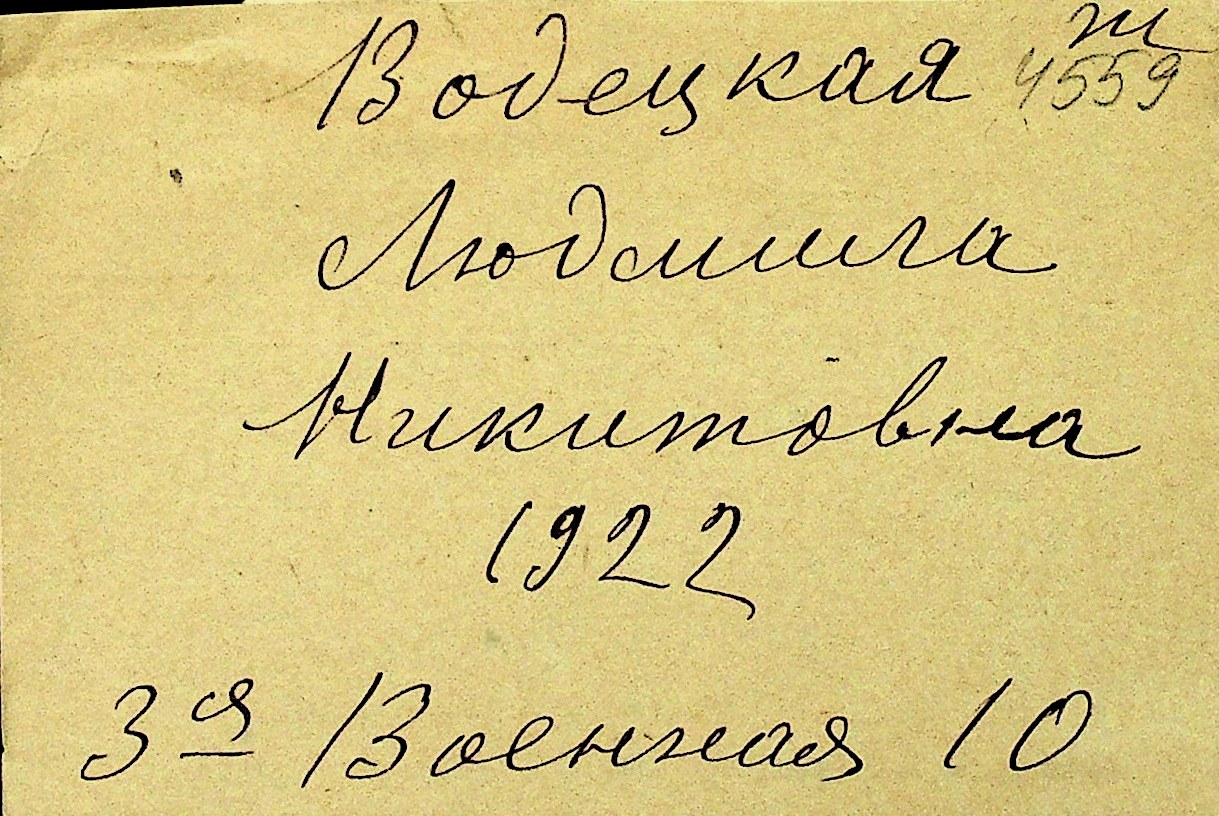 Водецкая т
4559
Людмила
Никитовна
1922
3я Военная 10